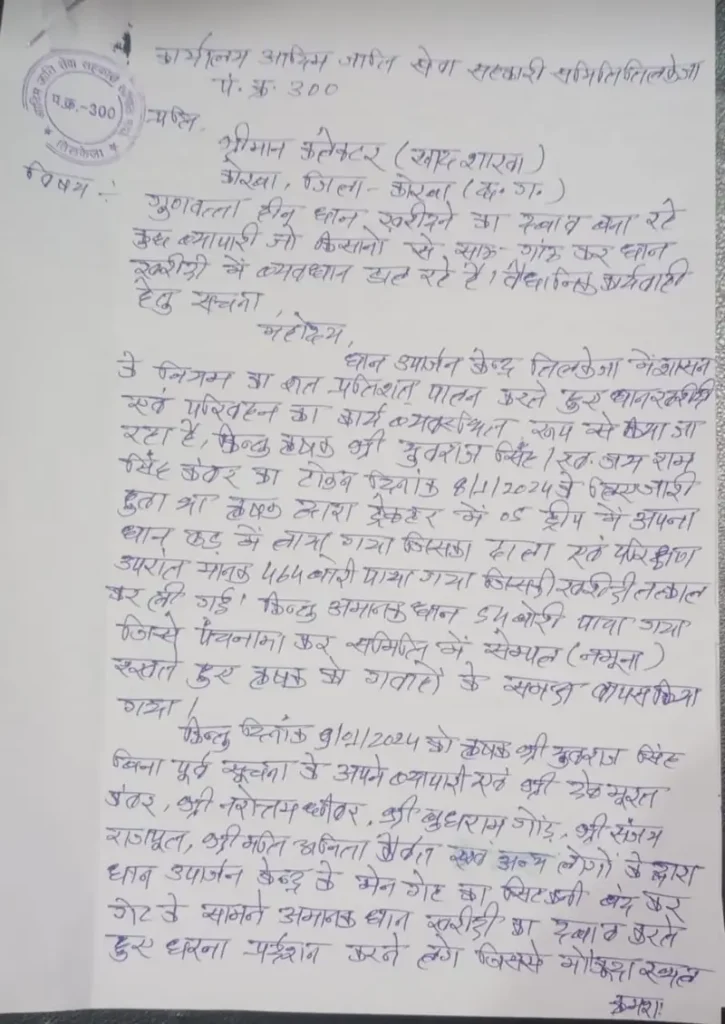 कार्यालय आदिम जाति सेवा सहकारी समिति तिलकेजा
पं. क्र. 300
आदिम जाति सेवा सहकारी
पं.क्र.-300
तिलकेजा
प्रति,
श्रीमान कलेक्टर (खाद्य शाखा)
कोरबा, जिला - कोरबा (छ.ग.)
विषय :-
गुणवत्ता हीन धान खरीदने का दबाव बना रहे
कुछ व्यापारी जो किसानो से साठ-गांठ कर धान
खरीदी में व्यवधान डाल रहे है। वैधानिक कार्यवाही
हेतु सूचना
महोदय,
धान उपार्जन केन्द्र तिलकेजा में शासन
के नियम का शत प्रतिशत पालन करते हुए धान खरीदी
एवं परिवहन का कार्य व्यवस्थित रूप से किया जा
रहा है, किन्तु कृषक श्री युवराज सिंह / स्व. जय राम
सिंह कंवर का टोकन दिनांक 8/1/2024 के लिए जारी
हुआ था कृषक द्वारा ट्रेक्टर में 05 ट्रीप में अपना
धान फड़ में लाया गया जिसका ढाला एवं परिक्षण
उपरांत मानक 464 बोरी पाया गया जिसकी खरीदी तत्काल
कर ली गई। किन्तु अमानक धान 54 बोरी पाया गया
जिसे पंचनामा कर समिति में सेम्पल (नमूना)
रखते हुए कृषक को गवाहों के समक्ष वापस किया
गया।
किन्तु दिनांक 9/01/2024 को कृषक श्री युवराज सिंह
बिना पूर्व सूचना के अपने व्यापारी एवं श्री देव मूरत
कंवर, श्री नरोत्तम धीवर, श्री बुधराम गोंड़, श्री संजय
राजपूत, श्री मति अनिता केंवट एवं अन्य लोगों के द्वारा
धान उपार्जन केन्द्र के मेन गेट का सिटकनी बंद कर
गेट के सामने अमानक धान खरीदी का दबाव करते
हुए धरना प्रर्दशन करने लगे जिससे मौजूदा स्थल
क्रमशः